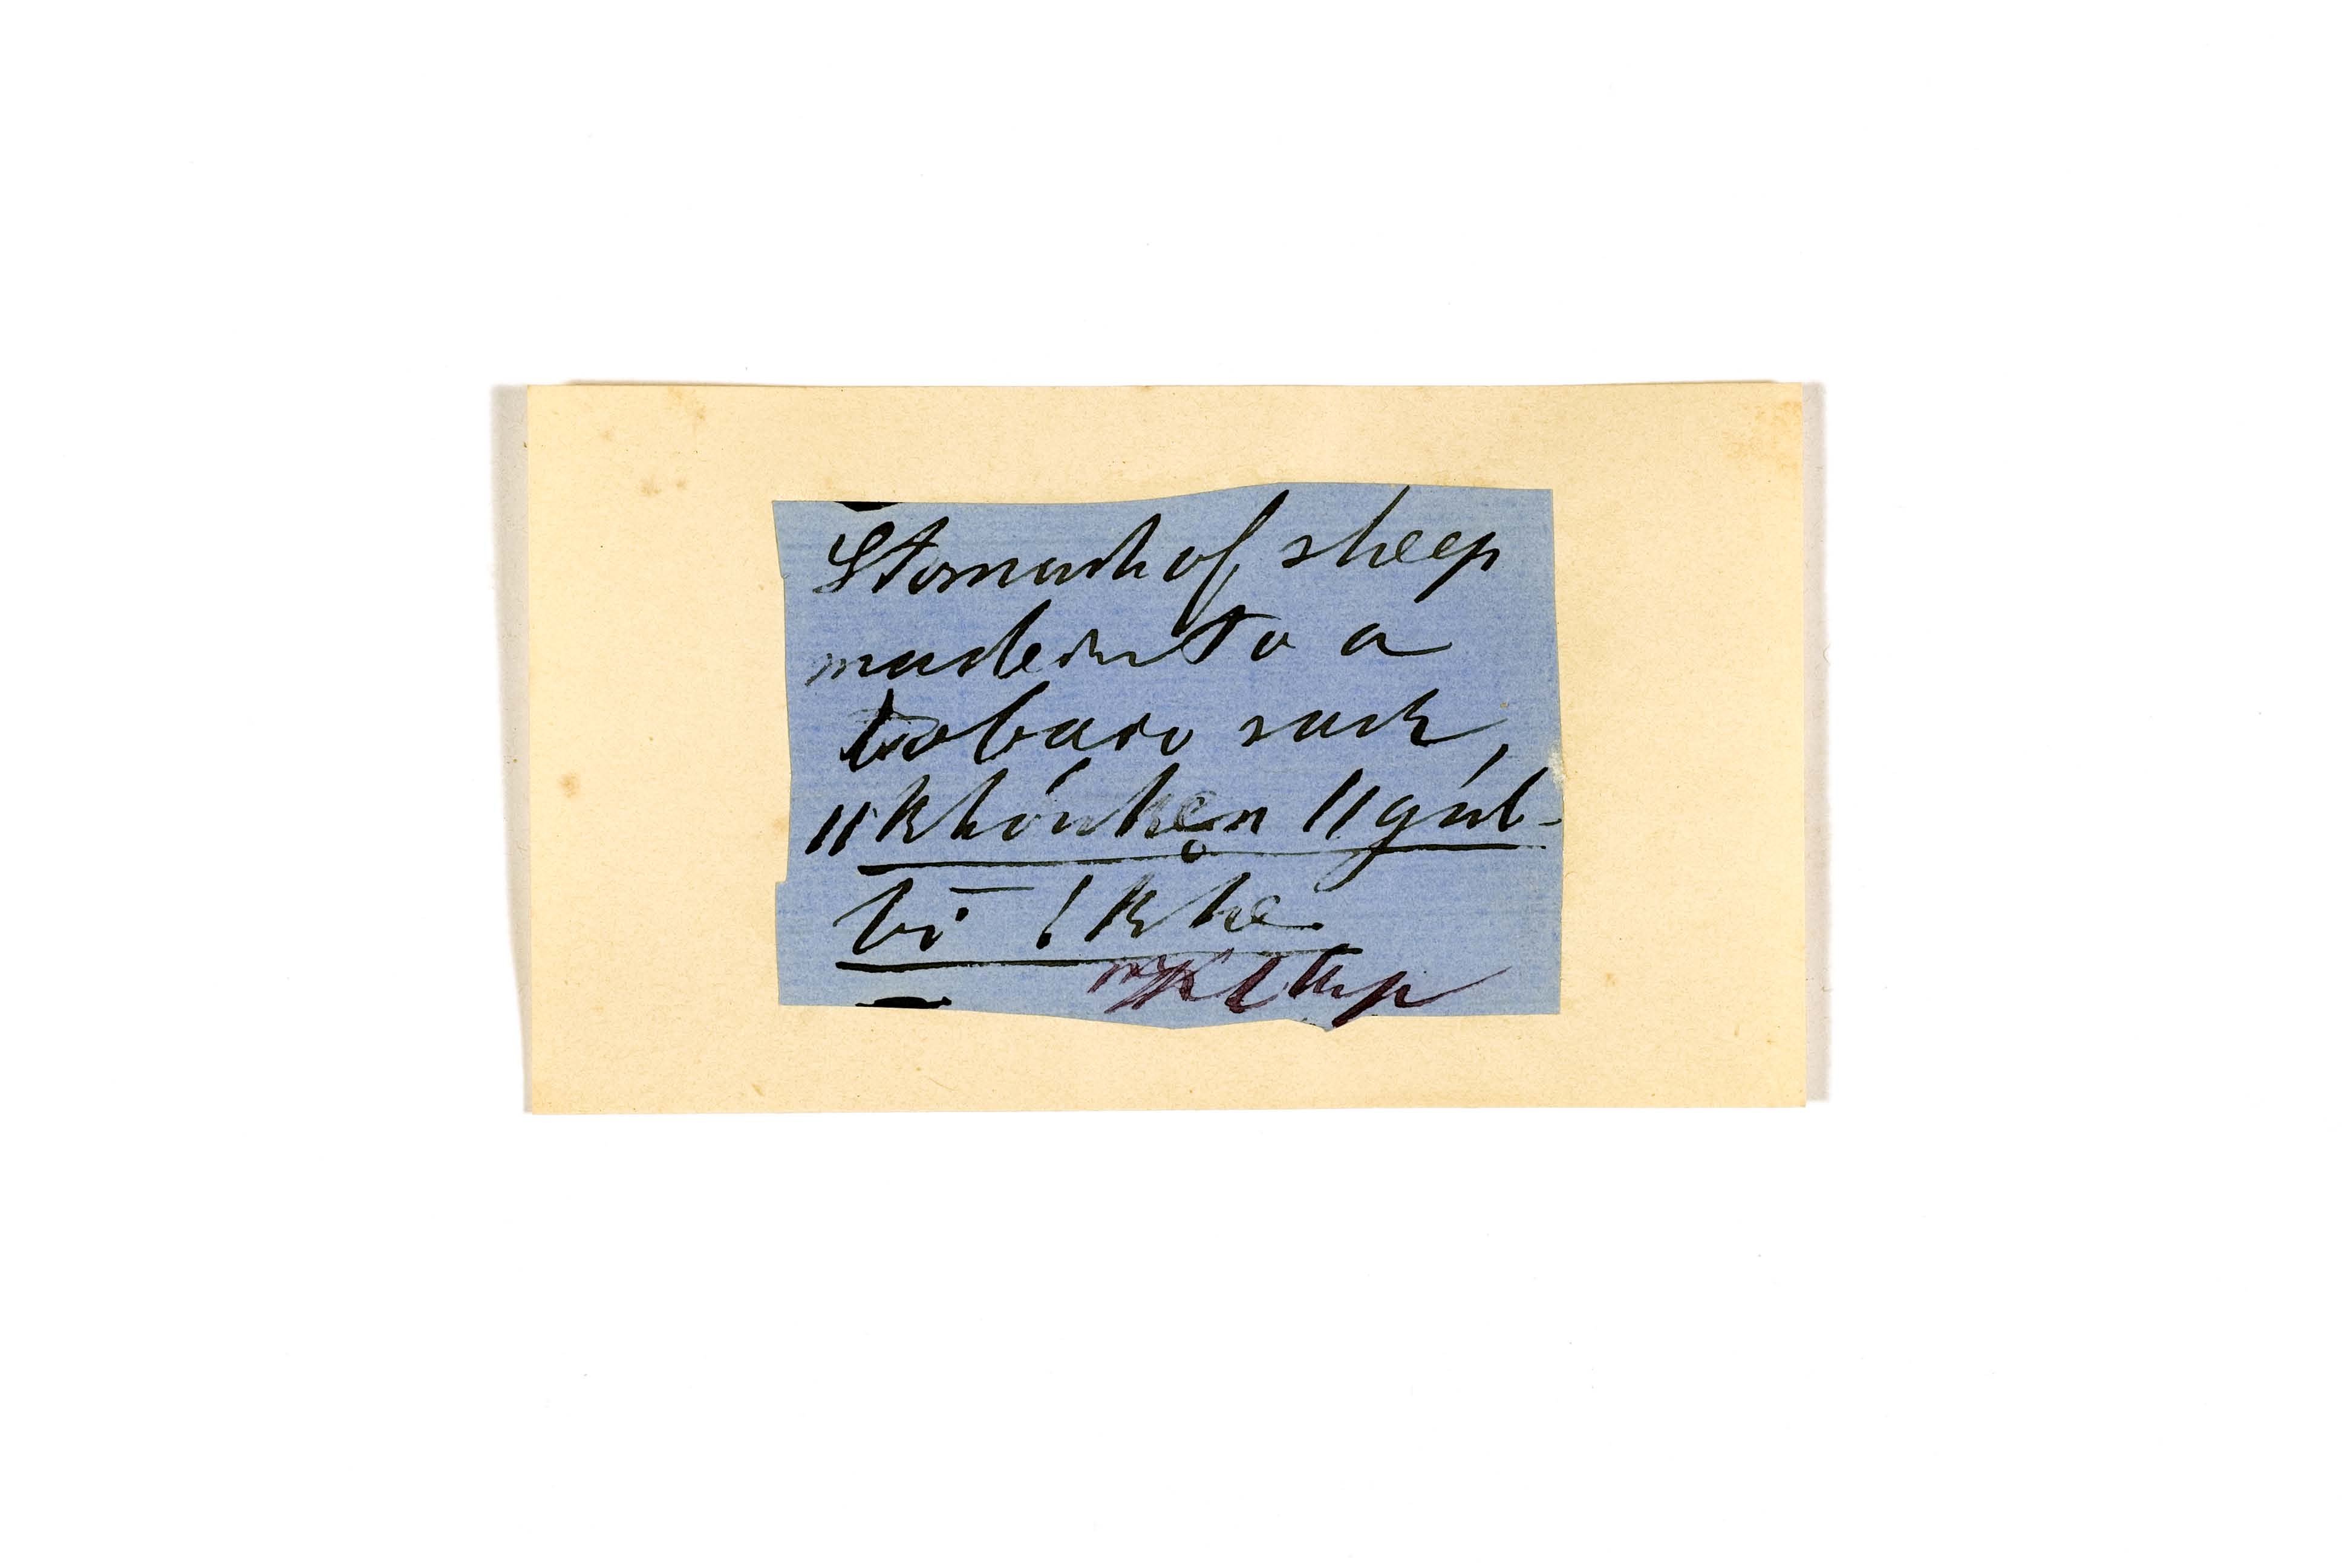 Stomach of sheep
made into a
tobacco sack,
||khóuken ||gúb-
bi !khe